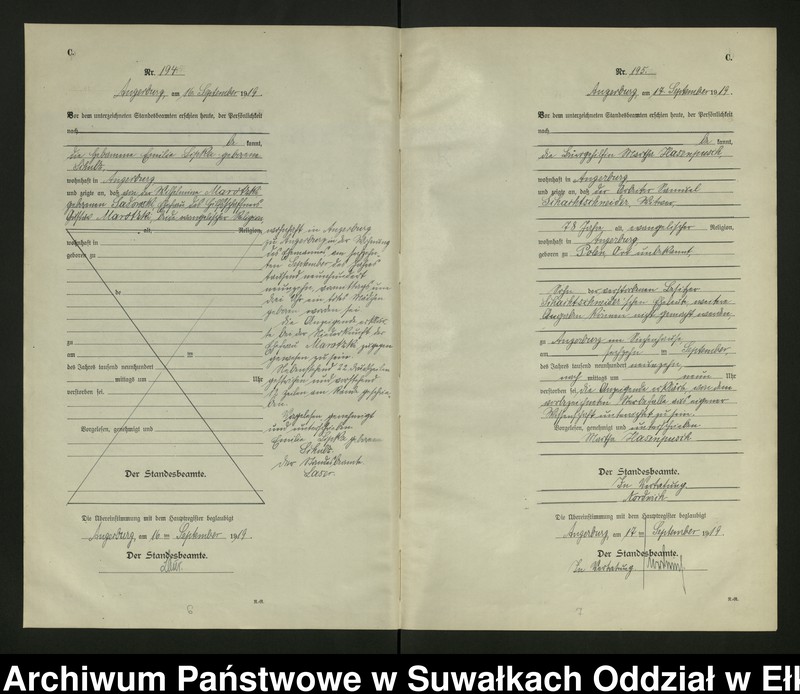 C.
Nr. 194
Angerburg, am 16. September 1919.
Vor dem unterzeichneten Standesbeamten erschien heute, der Persönlichkeit
nach
be kannt,
die Hebamme Emilie Lipka geborene
Schulz,
wohnhaft in Angerburg
und zeigte an, daß von der Wilhelmine Marotzki
geborenen Sadowski, Ehefrau des
Marotzki, beide evangelischer Religion
alt, Religion,
wohnhaft in
geboren zu
de
zu
am ten
des Jahres tausend neunhundert
mittags um Uhr
verstorben sei.
Vorgelesen, genehmigt und
Der Standesbeamte.
wohnhaft in Angerburg
zu Angerburg in der Wohnung
des Ehemannes am sechzehn-
ten September des Jahres
tausend neunhundert
neunzehn, vormittags um
drei Uhr ein totes Mädchen
geboren worden sei.
Die Anzeigende erklär-
te bei der Niederkunft der
Ehefrau Marotzki zugegen
gewesen zu sein.
Nebenstehend 22 Druckworte
gestrichen und vorstehend
17 Zeilen am Rande geschrie-
ben.
Vorgelesen, genehmigt
und unterschrieben
Emilie Lipka geborene
Schulz
Der Standesbeamte
Laser.
Die Übereinstimmung mit dem Hauptregister beglaubigt
Angerburg, am 16 ten September 1919.
Der Standesbeamte.
C.
Nr. 195.
Angerburg, am 17. September 1919.
Vor dem unterzeichneten Standesbeamten erschien heute, der Persönlichkeit
nach
be kannt,
die Bürogehilfin Martha Hasenpusch,
wohnhaft in Angerburg
und zeigte an, daß der Arbeiter Samuel
Schachtschneider, Witwer,
78 Jahre alt, evangelischer Religion,
wohnhaft in Angerburg
geboren zu Polen, Ort unbekannt,
Sohn der verstorbenen Besitzer
Schachtschneider'schen Eheleute, weitere
Angaben können nicht gemacht werden,
zu Angerburg im Siechenhause
am sechzehn ten September,
des Jahres tausend neunhundert neunzehn,
nach mittags um neun Uhr
verstorben sei. Die Anzeigende erklärte, von dem
vorbezeichneten Sterbefalle aus eigener
Wissenschaft unterrichtet zu sein.
Vorgelesen, genehmigt und unterschrieben
Martha Hasenpusch
Der Standesbeamte.
In Vertretung
Die Übereinstimmung mit dem Hauptregister beglaubigt
Angerburg, am 17 ten September 1919.
Der Standesbeamte.
In Vertretung
Archiwum Państwowe w Suwałkach Oddział w Ełk